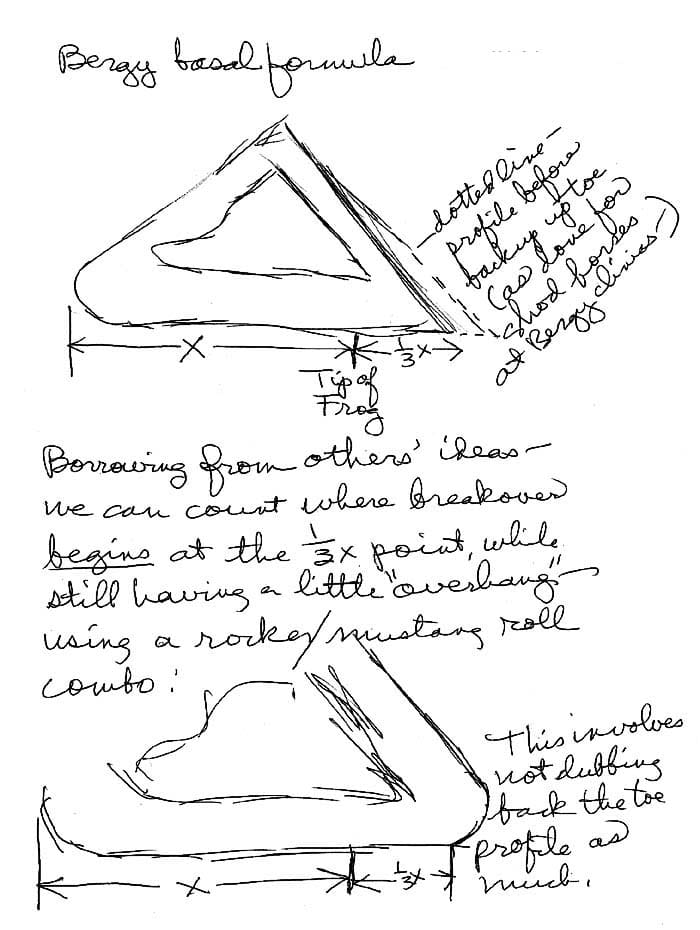 Bergy basal formula
dotted line –
profile before
backup of toe
(as done for
shod horses
at Bergy clinics)
X
1/3 x
Tip of
Frog
Borrowing from others' ideas –
we can count where breakover
begins at the 1/3 x point, while
still having a little "overhang" –
using a rocker/mustang roll
combo:
This involves
not dubbing
back the toe
profile as
much.
X
1/3 x